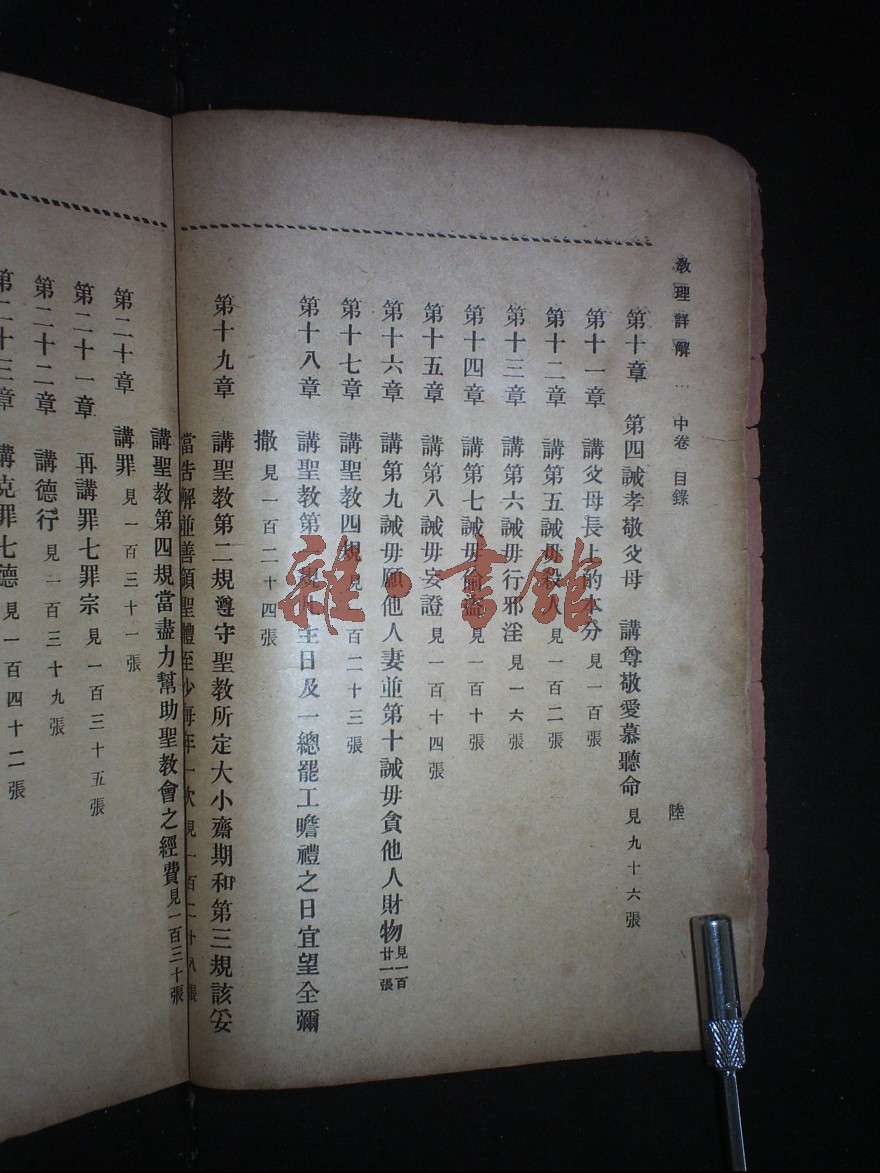 教理詳解 中卷 目錄 陸
第十章 第四誡孝敬父母 講尊敬愛慕聽命 見九十六張
第十一章 講父母長上的本分 見一百張
第十二章 講第五誡毋殺人 見一百二張
第十三章 講第六誡毋行邪淫 見一六張
第十四章 講第七誡毋偷盗 見一百十張
第十五章 講第八誡毋妄證 見一百十四張
第十六章 講第九誡毋願他人妻並第十誡毋貪他人財物 見一百廿一張
第十七章 講聖教四規 見一百二十三張
第十八章 講聖教第一規凡主日及一總罷工瞻禮之日宜望全彌
撒 見一百二十四張
第十九章 講聖教第二規遵守聖教所定大小齋期和第三規該妥
當告解並善領聖體至少每年一次 見一百二十八張
講聖教第四規當盡力幫助聖教會之經費 見一百三十張
第二十章 講罪 見一百三十一張
第二十一章 再講罪七罪宗 見一百三十五張
第二十二章 講德行 見一百三十九張
第二十三章 講克罪七德 見一百四十二張
雜·書館